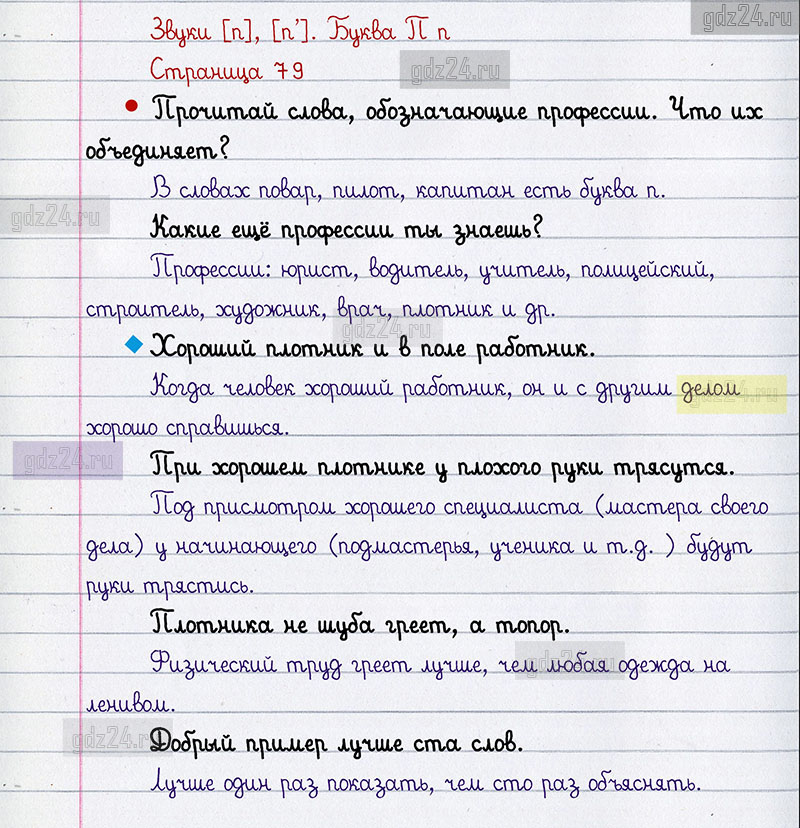 Звуки [п], [п']. Буква П п
Страница 79
Прочитай слова, обозначающие профессии. Что их
объединяет?
В словах повар, пилот, капитан есть буква п.
Какие ещё профессии ты знаешь?
Профессии: юрист, водитель, учитель, полицейский,
строитель, художник, врач, плотник и др.
Хороший плотник и в поле работник.
Когда человек хороший работник, он и с другим делом
хорошо справишься.
При хорошем плотнике у плохого руки трясутся.
Под присмотром хорошего специалиста (мастера своего
дела) у начинающего (подмастерья, ученика и т.д. ) будут
руки трястись.
Плотника не шуба греет, а топор.
Физический труд греет лучше, чем любая одежда на
ленивом.
Добрый пример лучше ста слов.
Лучше один раз показать, чем сто раз объяснять.
gdz24.ru
gdz24.ru
gdz24.ru
gdz24.ru
gdz24.ru
gdz24.ru
gdz24.ru
gdz24.ru